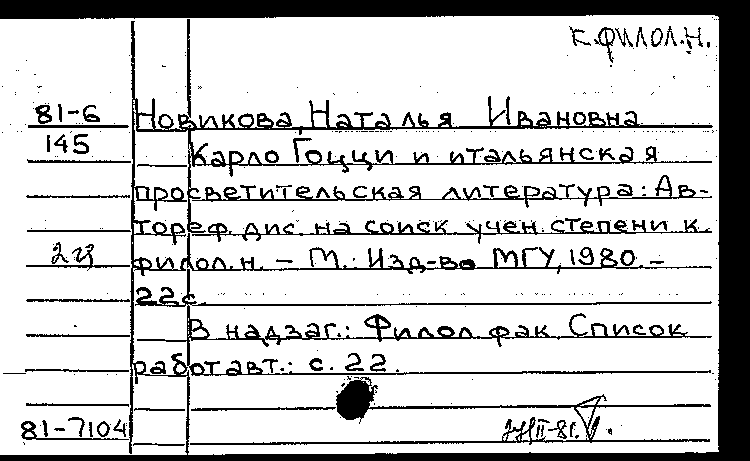 К.ФИЛОЛ.Н.
81-6 Новикова, Наталья Ивановна
145 Карло Гоцци и итальянская
просветительская литература: Ав-
тореф. дис. на соиск. учен. степени к.
филол.н. – М.: Изд-во МГУ, 1980. –
22с.
В надзаг.: Филол. фак. Список
работ авт.: с. 22.
81-7104